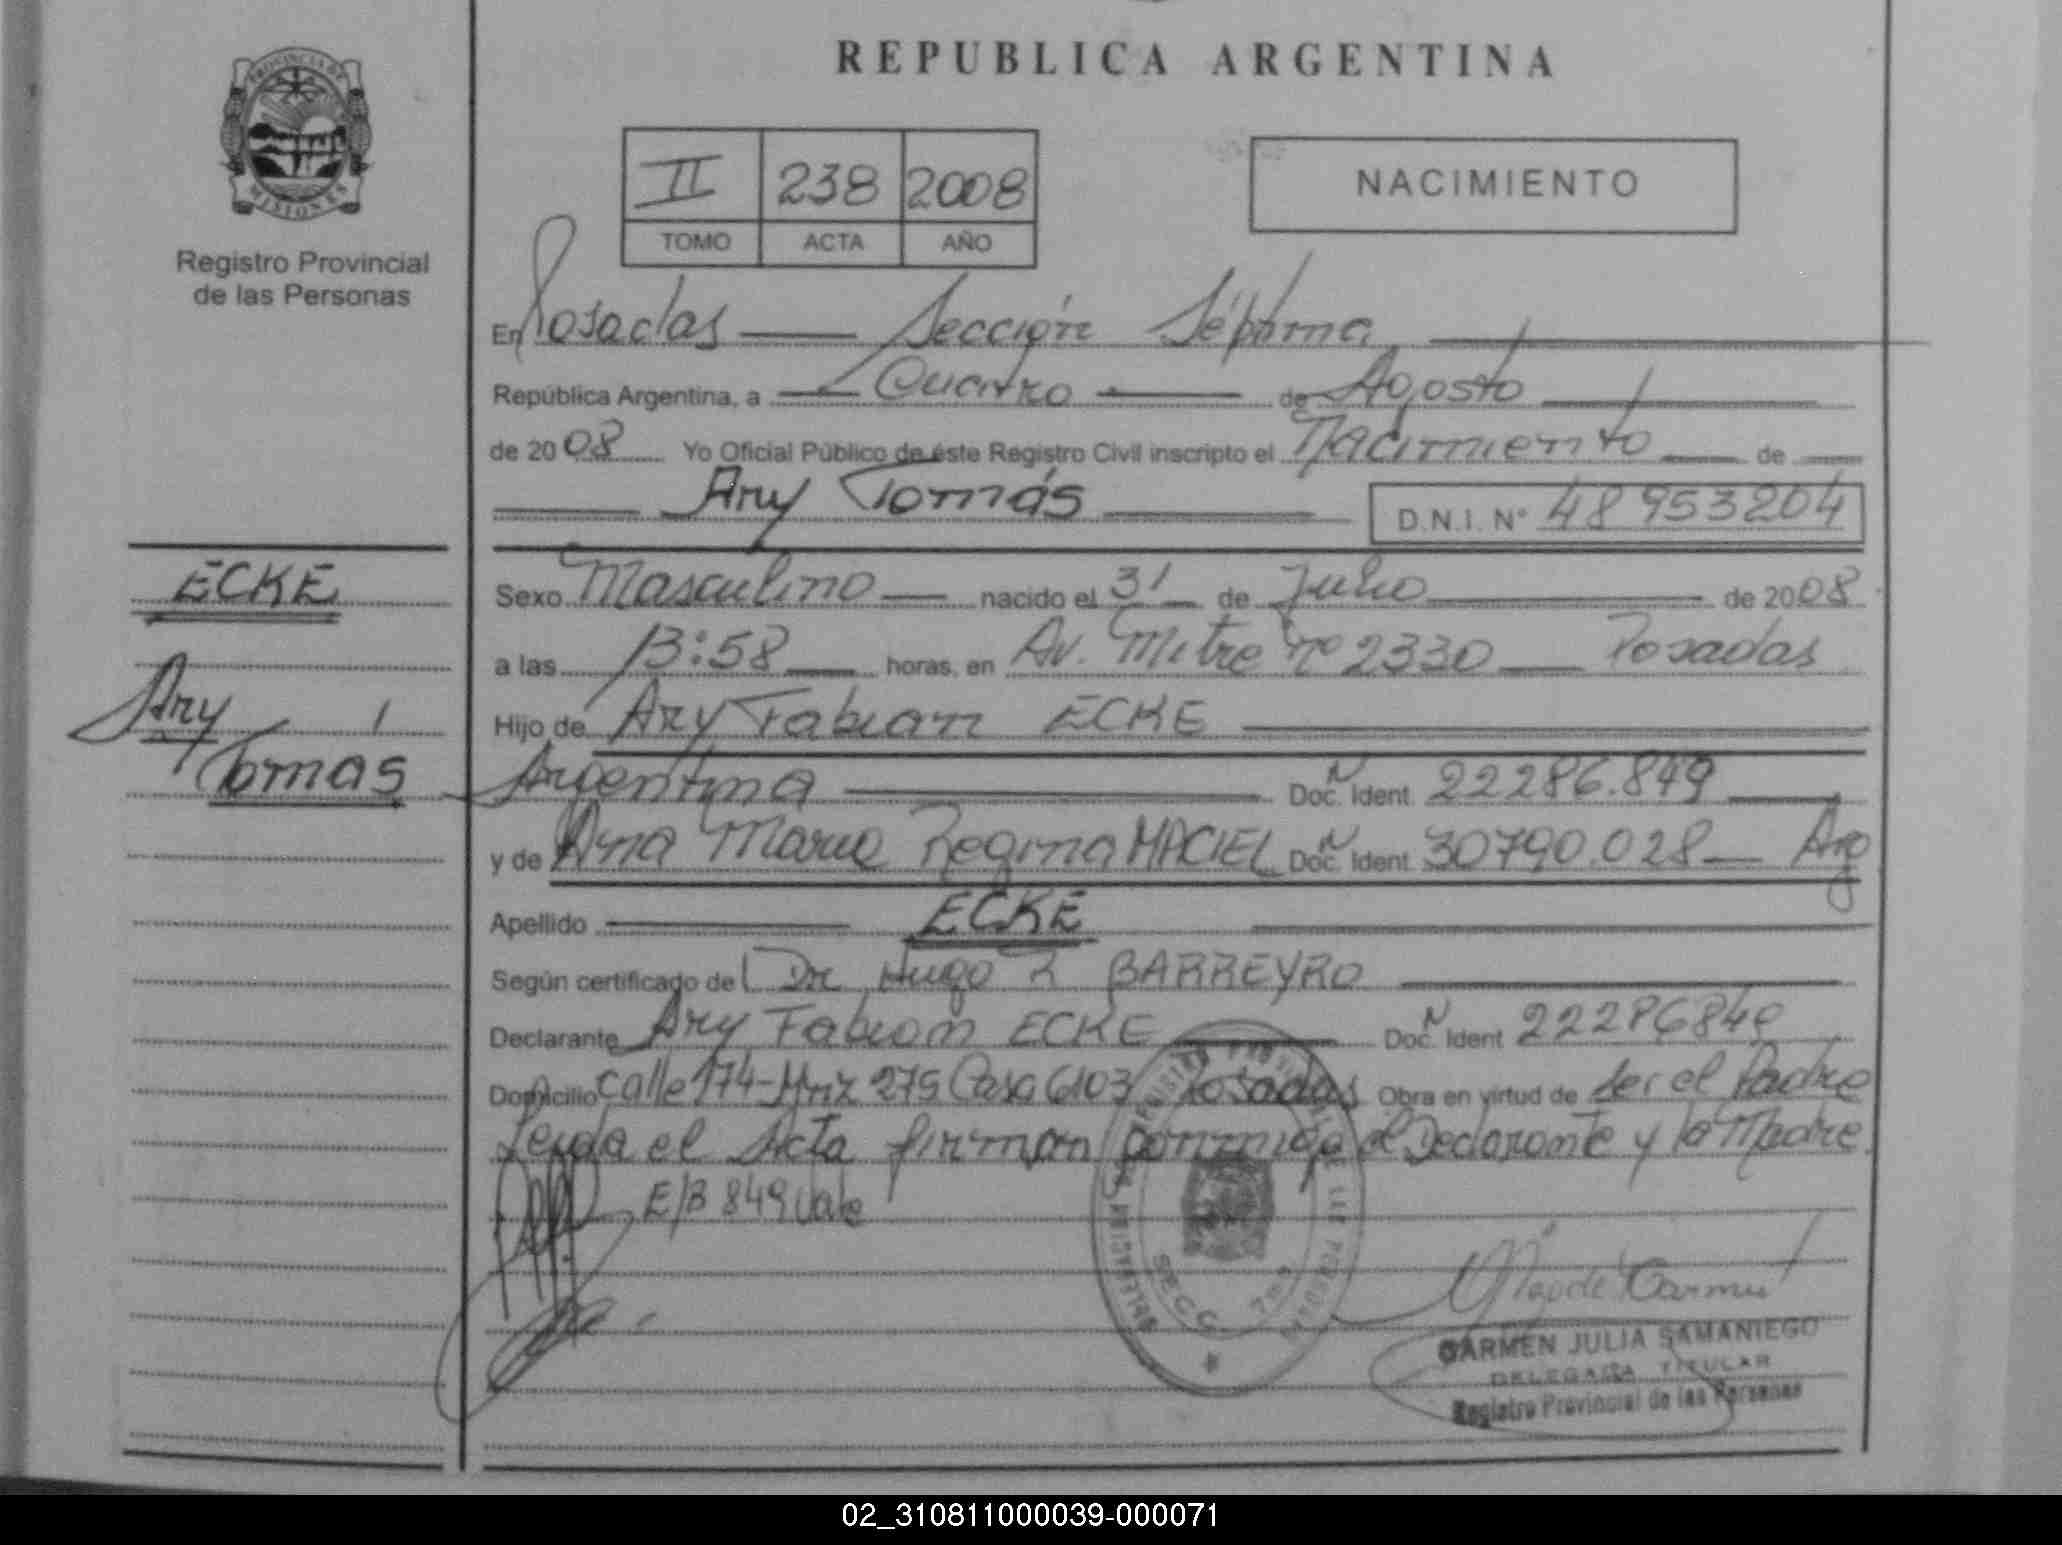 REPUBLICA ARGENTINA
PROVINCIA DE
MISIONES
Registro Provincial
de las Personas
II 238 2008
TOMO ACTA AÑO
NACIMIENTO
En Posadas Sección Séptima
República Argentina, a Cuatro de Agosto
de 2008 Yo Oficial Público de éste Registro Civil inscripto el Nacimiento de
Ary Tomás D.N.I. N° 48 953204
ECKE
Ary
Tomás
Sexo Masculino nacido el 31 de Julio de 2008
a las 13:58 horas, en Av. Mitre nº 2330 Posadas
Hijo de Ary Fabian ECKE
Argentina Doc. Ident. N 22286.849
y de Ana Maria Regina MACIEL Doc. Ident. N 30790.028 Arg
Apellido ECKE
Según certificado de Dr Hugo R BARREYRO
Declarante Ary Fabian ECKE Doc. Ident. N 22286849
Domicilio calle 174-Mnz 275 Casa 6103 Posadas Obra en virtud de ser el Padre
Leída el Acta firman conmigo el Declarante y la Madre.
E/B 849 Vale
SECC. 7ma
CARMEN JULIA SAMANIEGO
DELEGADA TITULAR
Registro Provincial de las Personas
02_310811000039-000071